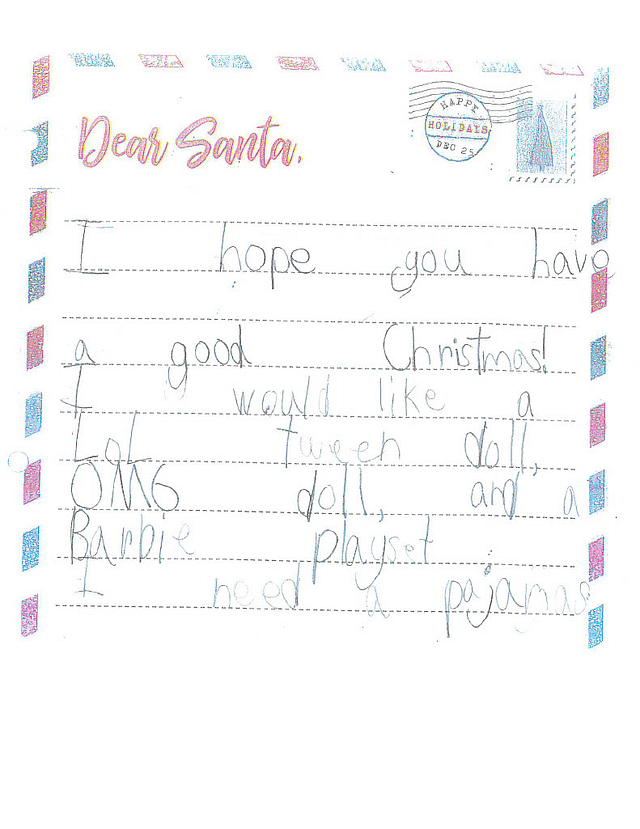 Dear Santa,
HAPPY
HOLIDAYS
DEC 25
I hope you have
a good Christmas!
I would like a
LoL tween doll,
OMG doll, and a
Barbie playset
I need a pajamas